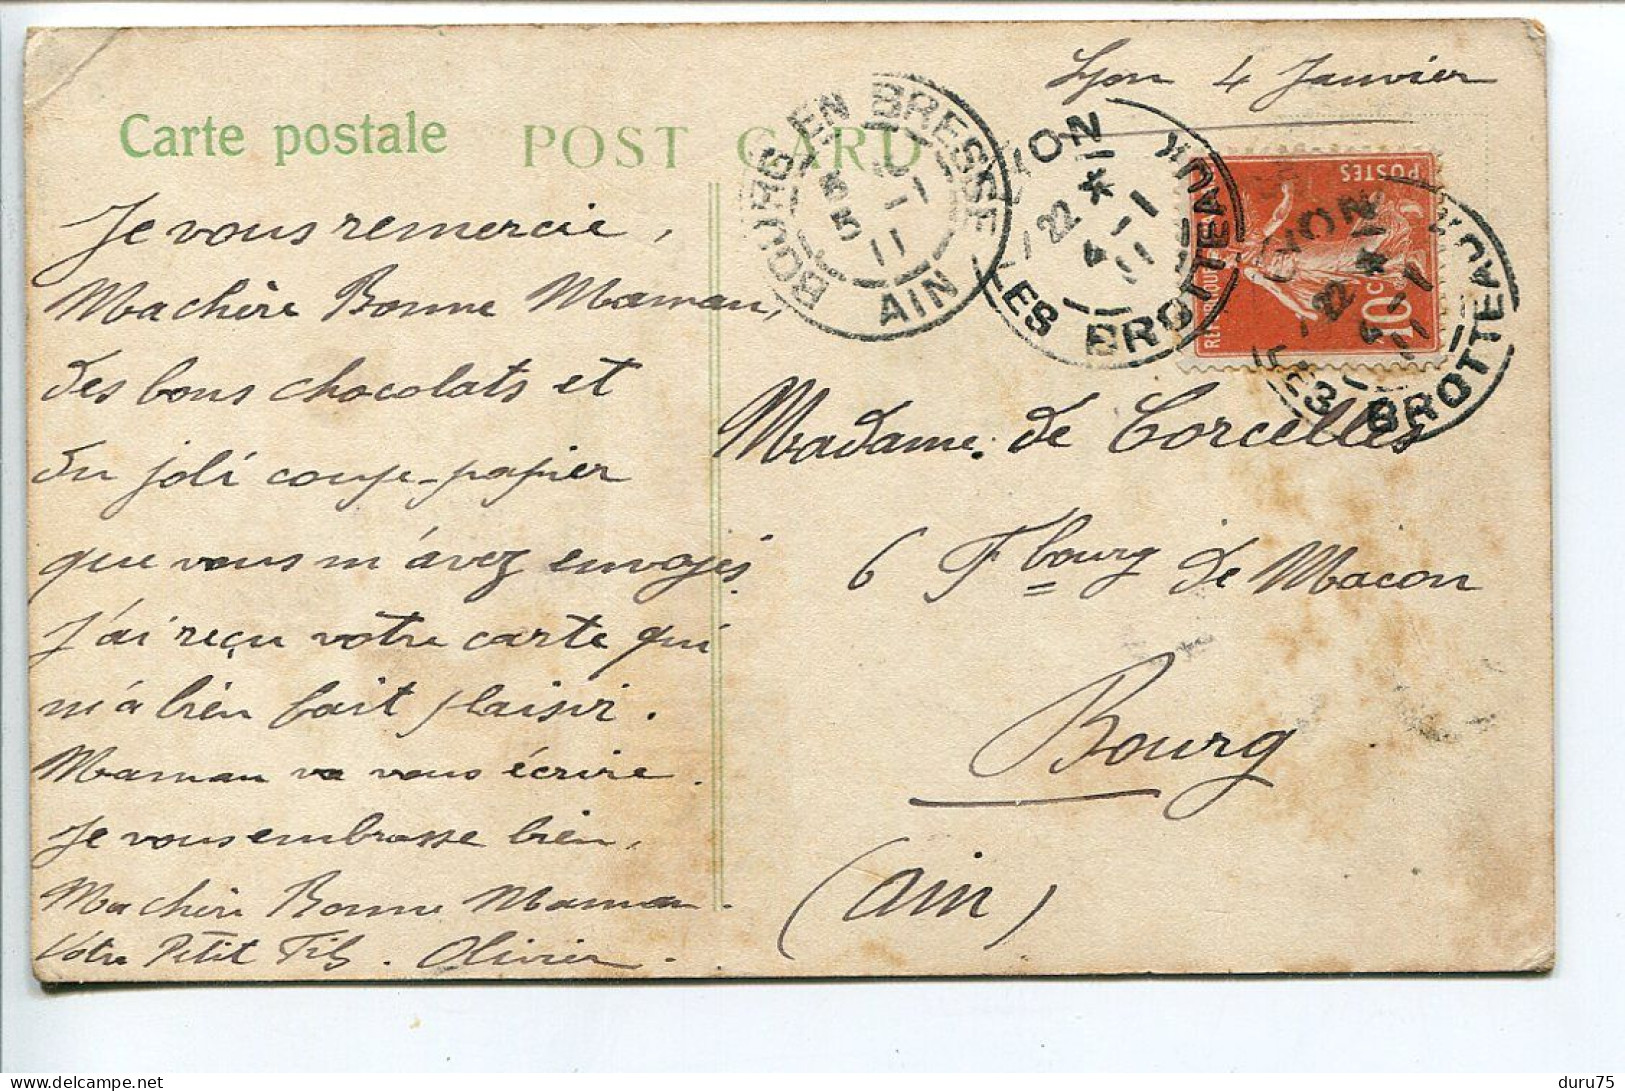 Lyon 4 Janvier
Carte postale POST CARD
BOURG EN BRESSE
5 - 1
11
AIN
LYON
LES BROTTEAUX
22 *
4 - 1
11
POSTES
10 C
LYON
LES BROTTEAUX
22 *
4 - 1
11
Je vous remercie,
Ma chère Bonne Maman,
des bons chocolats et
du joli coupe-papier
que vous m'avez envoyés
J'ai reçu votre carte qui
m'a bien fait plaisir.
Maman va vous écrire.
Je vous embrasse bien,
Ma chère Bonne Maman.
Votre Petit Fils. Olivier.
Madame de Corcelles
6 Fbourg de Macon
Bourg
(Ain)
delcampe.net
duru75